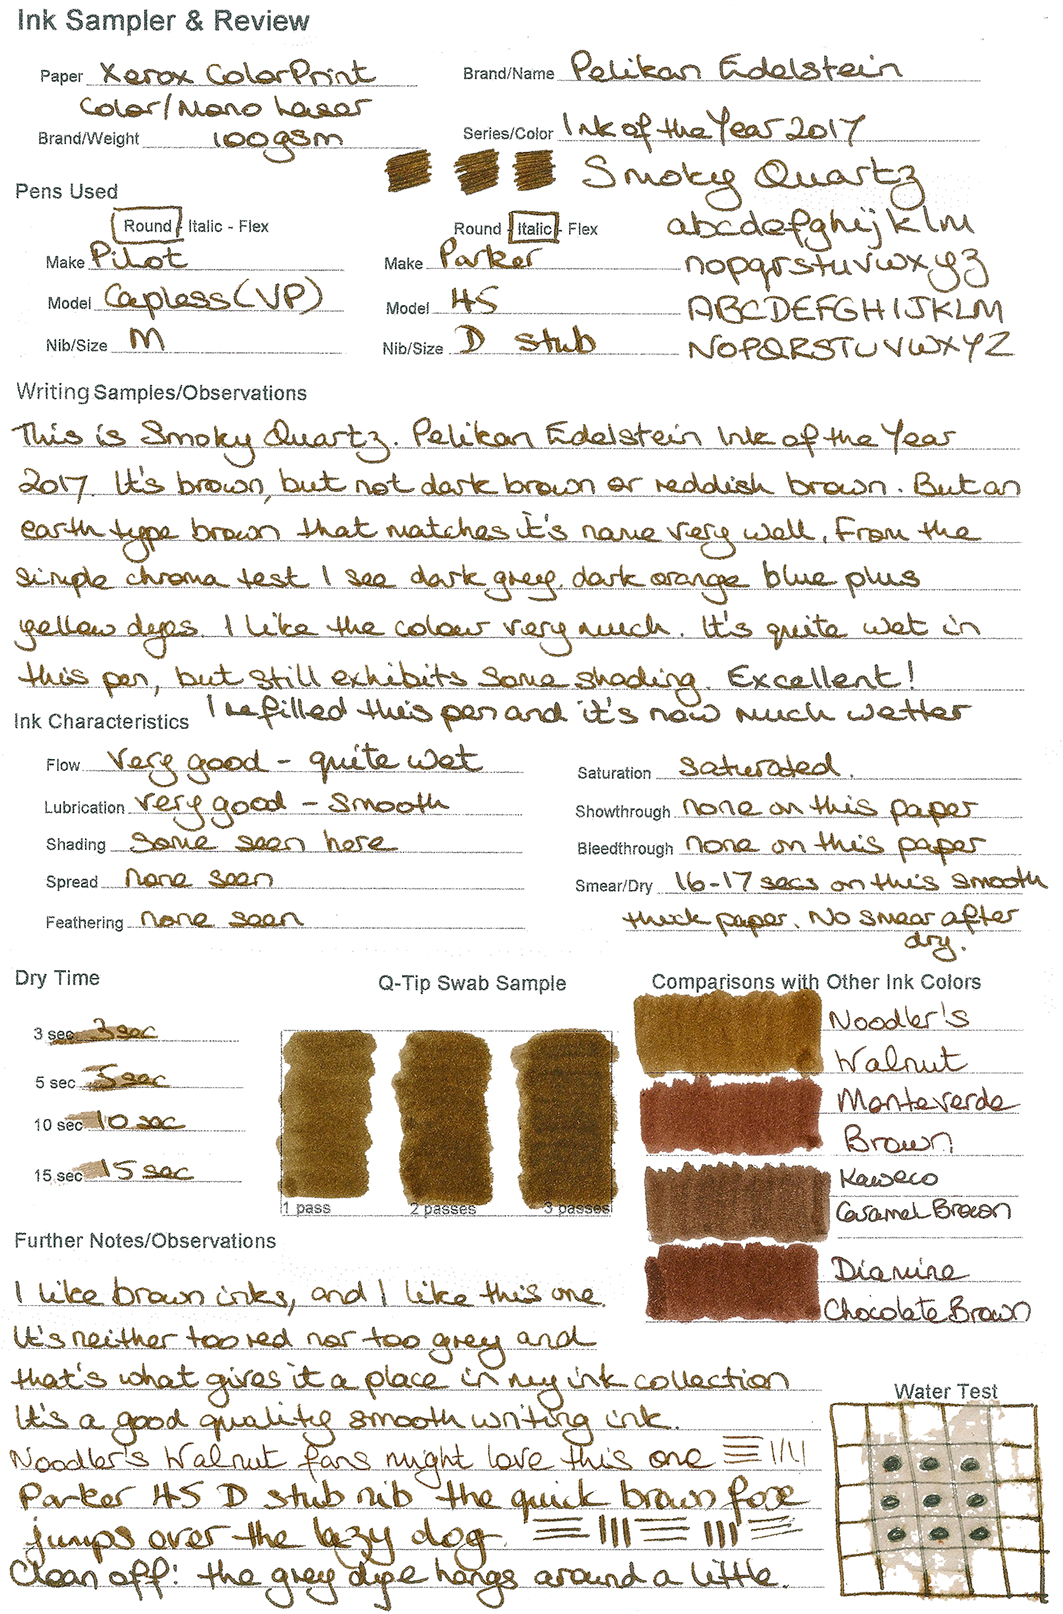 Ink Sampler & Review
Paper Xerox ColorPrint
Color/Mono Laser
Brand/Weight 100gsm
Brand/Name Pelikan Edelstein
Series/Color Ink of the Year 2017
Smoky Quartz
Pens Used
Round - Italic - Flex
Make Pilot
Model Capless (VP)
Nib/Size M
Round - Italic - Flex
Make Parker
Model 45
Nib/Size D stub
abcdefghijklm
nopqrstuvwxyz
ABCDEFGHIJKLM
NOPQRSTUVWXYZ
Writing Samples/Observations
This is Smoky Quartz. Pelikan Edelstein Ink of the Year
2017. It's brown, but not dark brown or reddish brown. But an
earth type brown that matches it's name very well. From the
simple chroma test I see dark grey, dark orange blue plus
yellow dyes. I like the colour very much. It's quite wet in
this pen, but still exhibits some shading. Excellent!
I refilled this pen and it's now much wetter
Ink Characteristics
Flow Very good - quite wet
Lubrication very good - smooth
Shading some seen here
Spread none seen
Feathering none seen
Saturation saturated.
Showthrough none on this paper
Bleedthrough none on this paper
Smear/Dry 16-17 secs on this smooth
thick paper. No smear after
dry.
Dry Time
3 sec 3 sec
5 sec 5 sec
10 sec 10 sec
15 sec 15 sec
Q-Tip Swab Sample
1 pass 2 passes 3 passes
Comparisons with Other Ink Colors
Noodler's
Walnut
Monteverde
Brown
Kaweco
Caramel Brown
Diamine
Chocolate Brown
Further Notes/Observations
I like brown inks, and I like this one.
It's neither too red nor too grey and
that's what gives it a place in my ink collection
It's a good quality smooth writing ink.
Noodler's Walnut fans might love this one
Parker 45 D stub nib the quick brown fox
jumps over the lazy dog.
Clean off: the grey dye hangs around a little.
Water Test